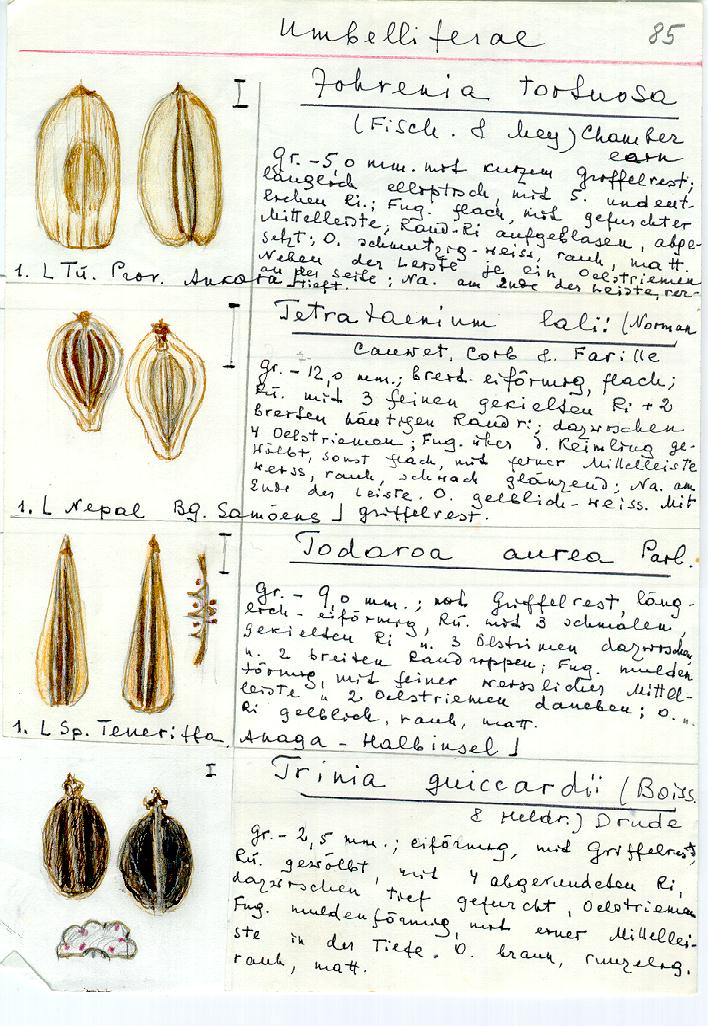 Umbelliferae 85
Johrenia tortuosa
(Fisch. & Mey) Chamber
gr. -5,0 mm. mit kurzem Griffelrest;
länglich elliptisch, mit 5 undeut-
lichen Ri.; Fug. flach, mit gefurchter
Mittelleiste; Rand-Ri aufgeblasen, abge-
setzt; O. schmutzig-weiss, rauh, matt.
Neben der Leiste je ein Oelstriemen
an der Seite; Na. am Ende der Leiste, ver-
tieft.
1. L Tü. Prov. Ankara
Tetrataenium lalii (Norman
Cauwet, Corb & Farille
gr. - 12,0 mm.; breit eiförmig, flach;
Rü. mit 3 feinen gekielten Ri + 2
breiten häutigen Randri; dazwischen
4 Oelstriemen; Fug. über d. Keimling ge-
wölbt, sonst flach, mit feiner Mittelleiste
weiss, rauh, schwach glänzend; Na. am
Ende der Leiste. O. gelblich-weiss. Mit
1. L Nepal Bg. Samöens ⌋ griffelrest.
Todaroa aurea Parl.
gr. - 9,0 mm.; mit Griffelrest, läng-
lich-eiförmig, Rü. mit 3 schmalen,
gekielten Ri u. 3 Ölstriemen dazwischen
u. 2 breiten Randrippen; Fug. mulden
förmig, mit feiner weisslicher Mittel-
leiste u 2 Oelstriemen daneben; O. u.
Ri gelblich, rauh, matt.
1. L Sp. Teneriffa, Anaga - Halbinsel ⌋
Trinia guiccardii (Boiss.
& Heldr.) Drude
gr. - 2,5 mm.; eiförmig, mit Griffelrest,
Rü. gewölbt, mit 4 abgerundeten Ri,
dazwischen tief gefurcht, Oelstriemen
Fug. muldenförmig, mit einer Mittellei-
ste in der Tiefe. O. braun, runzelig.
rauh, matt.